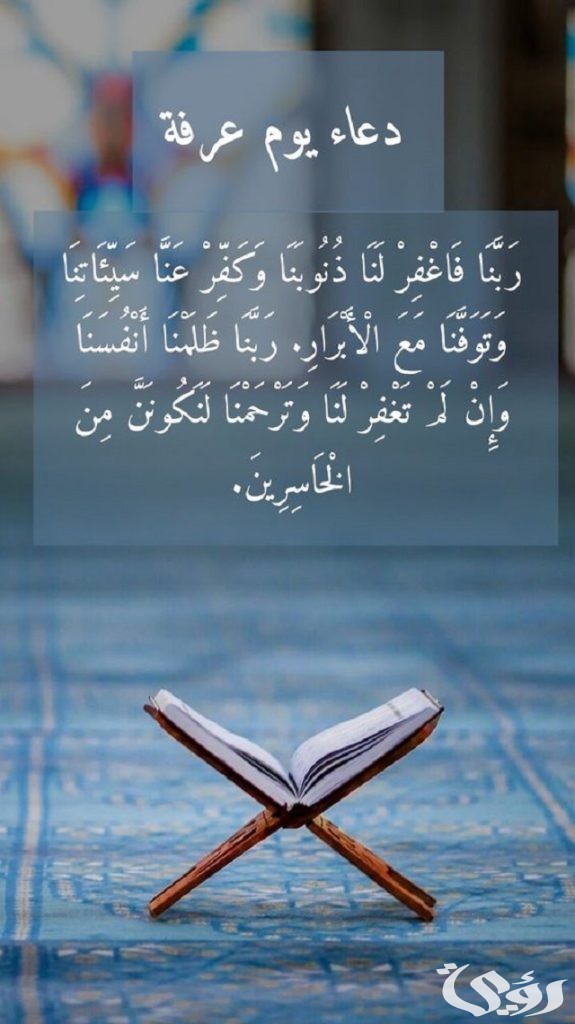 دعاء يوم عرفة
رَبَّنَا فَاغْفِرْ لَنَا ذُنُوبَنَا وَكَفِّرْ عَنَّا سَيِّئَاتِنَا
وَتَوَفَّنَا مَعَ الْأَبْرَارِ. رَبَّنَا ظَلَمْنَا أَنْفُسَنَا
وَإِنْ لَمْ تَغْفِرْ لَنَا وَتَرْحَمْنَا لَنَكُونَنَّ مِنَ
الْخَاسِرِينَ.
رؤية